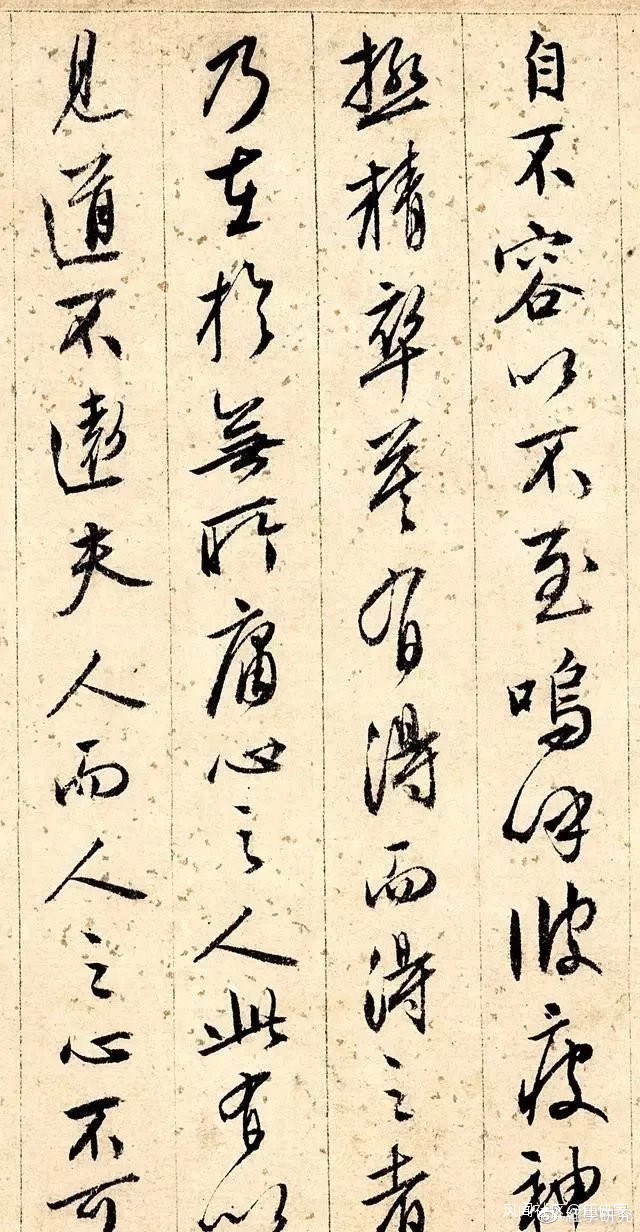 自不容以不至嗚呼彼疲神
極精卒莫有得而得之者
乃在於無所庸心之人此有以
見道不遠夫人而人之心不可